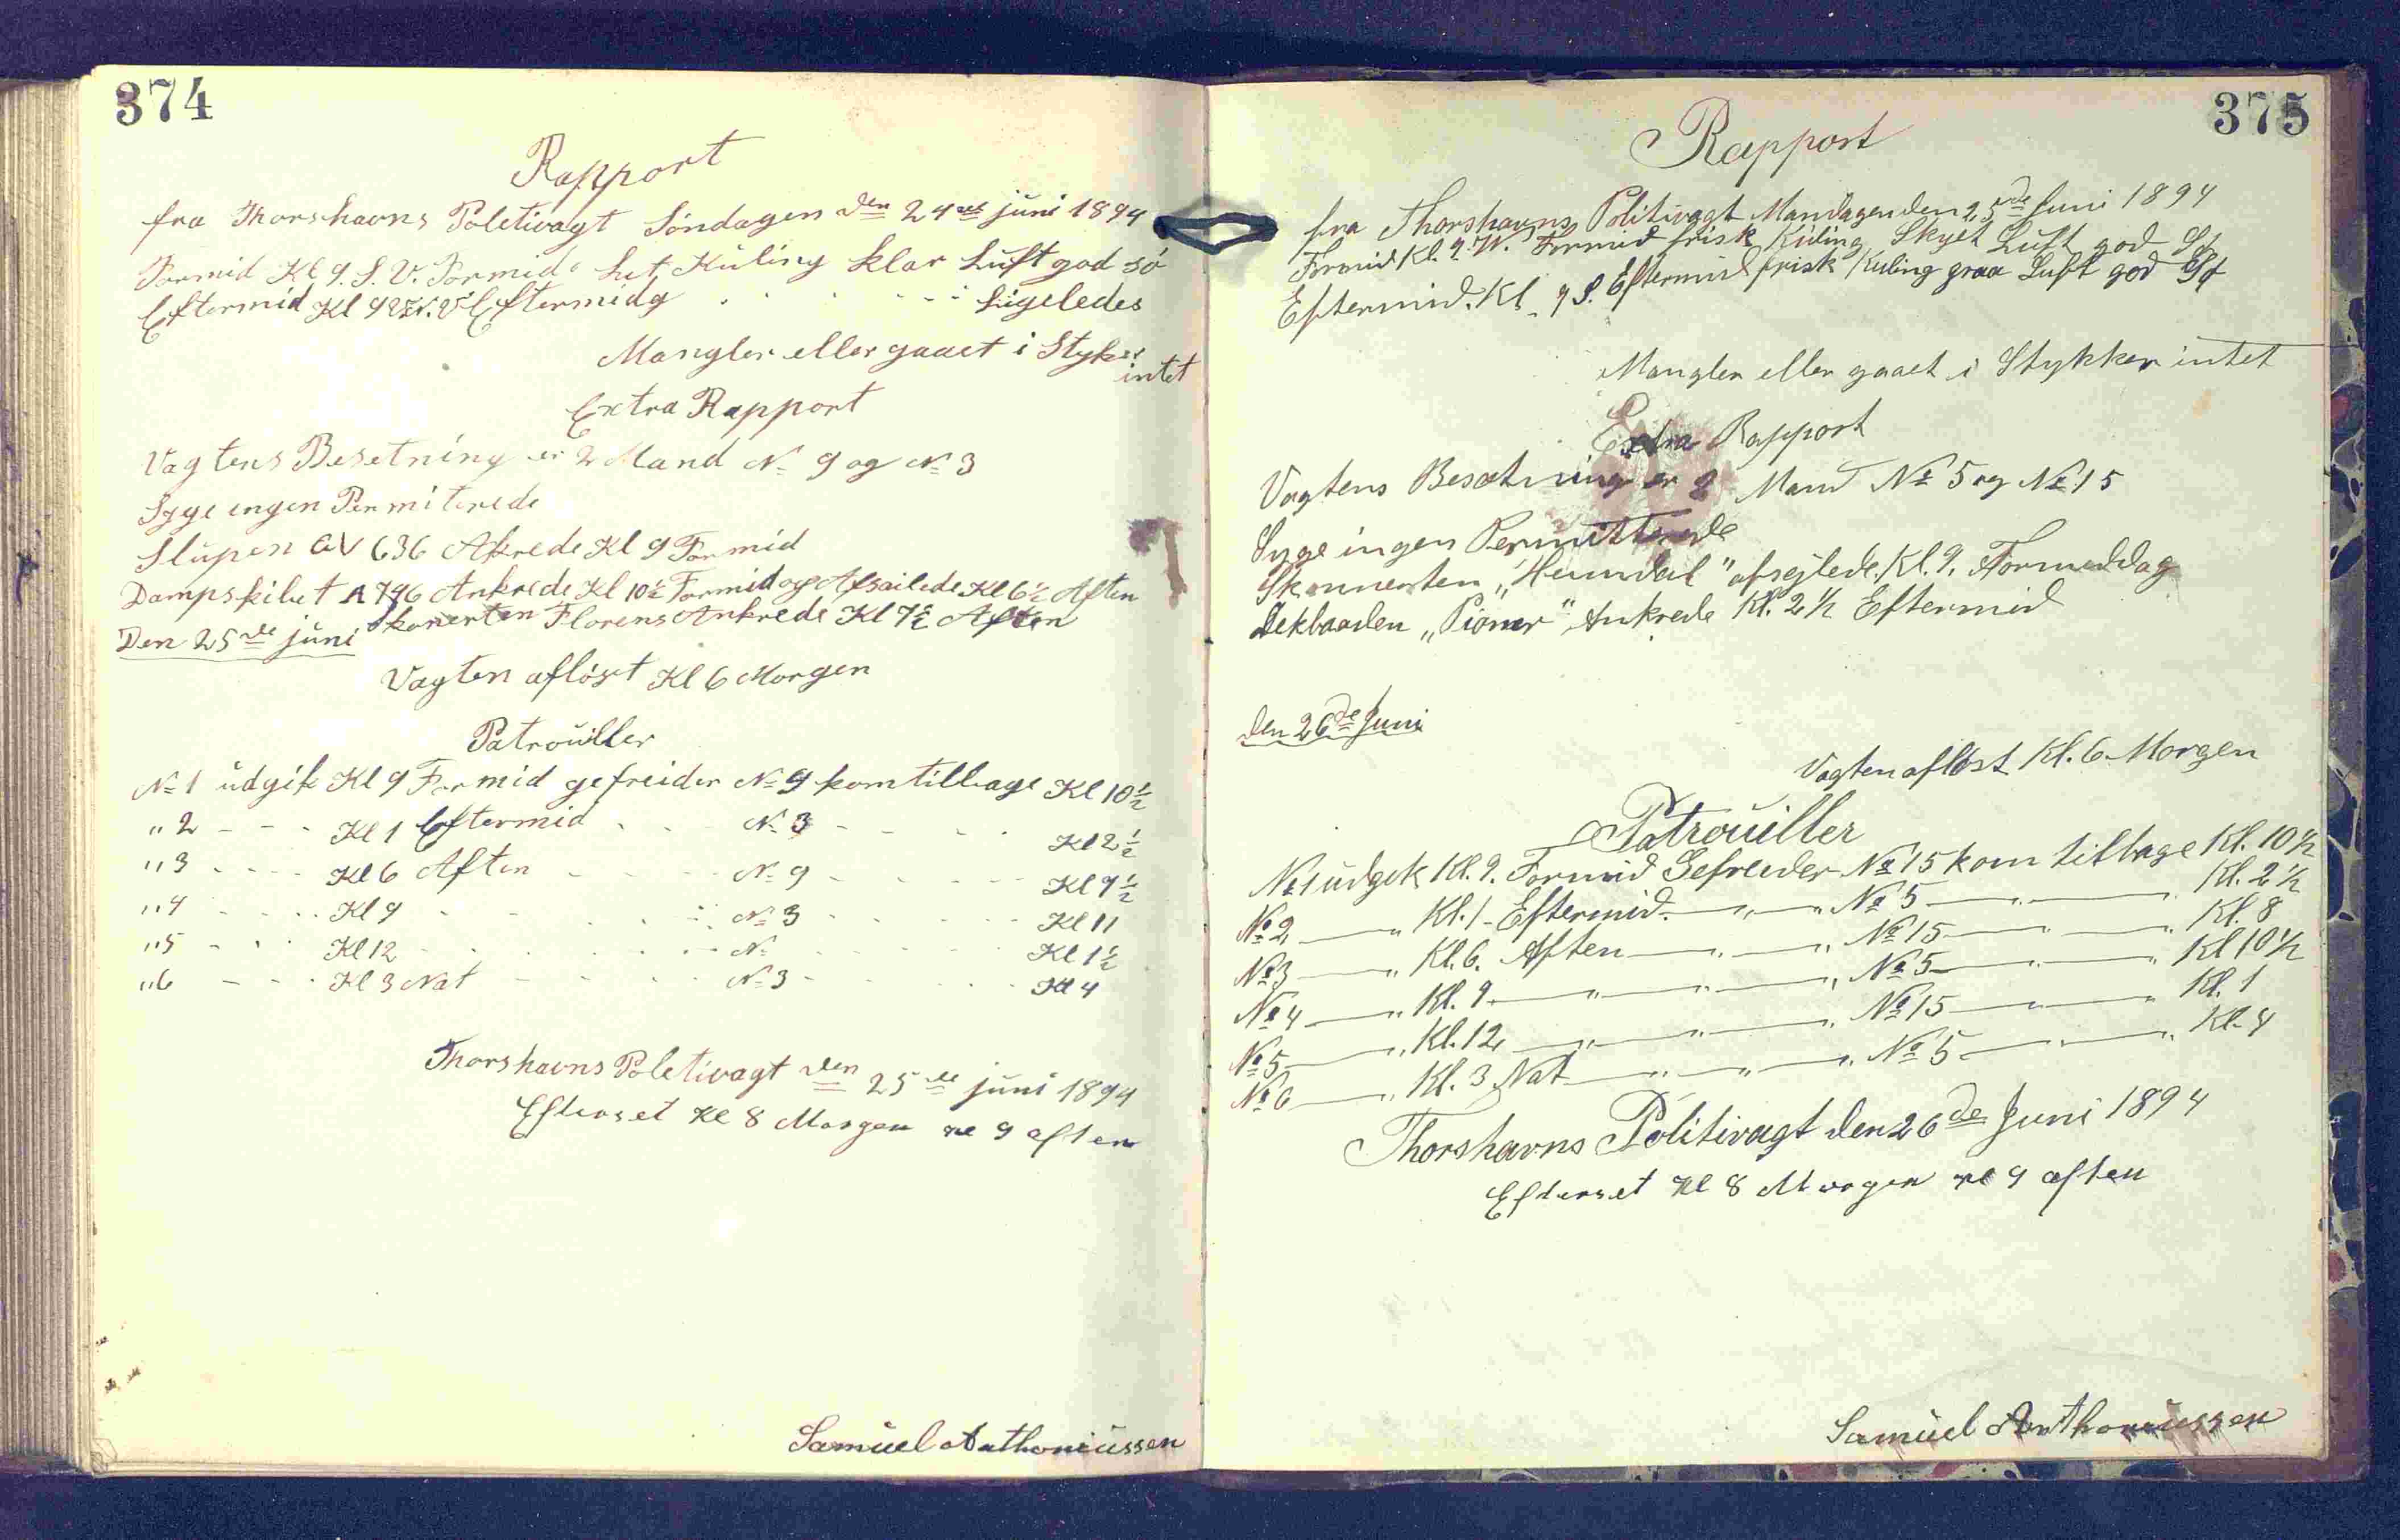 374
Rapport
fra Thorshavns Poletivagt Söndagen den 24de juni 1894
Formid Kl 9. S. V. Formid let Küling klar Luft god sö
Eftermid Kl 9 Eftermidg . . . - - - ligeledes
Mangler eller gaaet i Styker
intet
Extra Rapport
Vagtens Besetning er 2 Mand No 9 og No 3
Syge ingen Permiterede
Slupen GV 636 Akrede Kl 9 Formid
Dampskibet A 746 Ankrede Kl 10½ Formid og Afsailede Kl 6½ Aften
Skonerten Florens Ankrede Kl 7½ Aften
Den 25de juni
Vagten aflöset Kl 6 Morgen
Patroüller
No 1 üdgik Kl 9 Formid gefreider No 9 kom tilbage Kl 10½
" 2 - - - Kl 1 Eftermid . . . No 3 - - - Kl 2½
" 3 - - - Kl 6 Aften - - - No 9 - - - Kl 7½
" 4 - - - Kl 9 - - - No 3 - - - Kl 11
" 5 - - - Kl 12 - - - No - - - Kl 1½
" 6 - - - Kl 3 Nat - - - No 3 - - - Kl 4
Thorshavns Poletivagt den 25de juni 1894
Efterset Kl 8 Morgen Kl 9 aften
Samüel Anthoniüssen
375
Rapport
fra Thorshavns Politivagt Mandagen den 25de Juni 1894
Formid Kl. 9. V. Formid frisk Kuling Skyet Luft god Sö
Eftermid. Kl. 9 S. Eftermid frisk Kuling graa Luft god Sö
Mangler eller gaaet i Stykker intet
Extra Rapport
Vagtens Besætning er 2 Mand No 5 og No 15
Syge ingen Permitterede
Skonnerten „Heimdal" afsejlede. Kl. 9. Formiddag
Dekbaaden „Pioner" Ankrede Kl. 2½ Eftermid
den 26de Juni
Vagten afløst Kl. 6 Morgen
Patroüiller
No 1 üdgik Kl. 9. Formid Gefreider No 15 kom tilbage Kl. 10½
No 2 — " Kl. 1 Eftermid. — " — " No 5 — " — " Kl. 2½
No 3 — " Kl. 6. Aften — " — " No 15 — " — " Kl. 8
No 4 — " Kl. 9 — " — " — " No 5 — " — " Kl 10½
No 5 — " Kl. 12 — " — " — " No 15 — " — " Kl. 1
No 6 — " Kl. 3 Nat — " — " — " No 5 — " — " Kl. 4
Thorshavns Politivagt den 26de Juni 1894
Efterset Kl 8 Morgen Kl 9 aften
Samüel Anthoniüssen